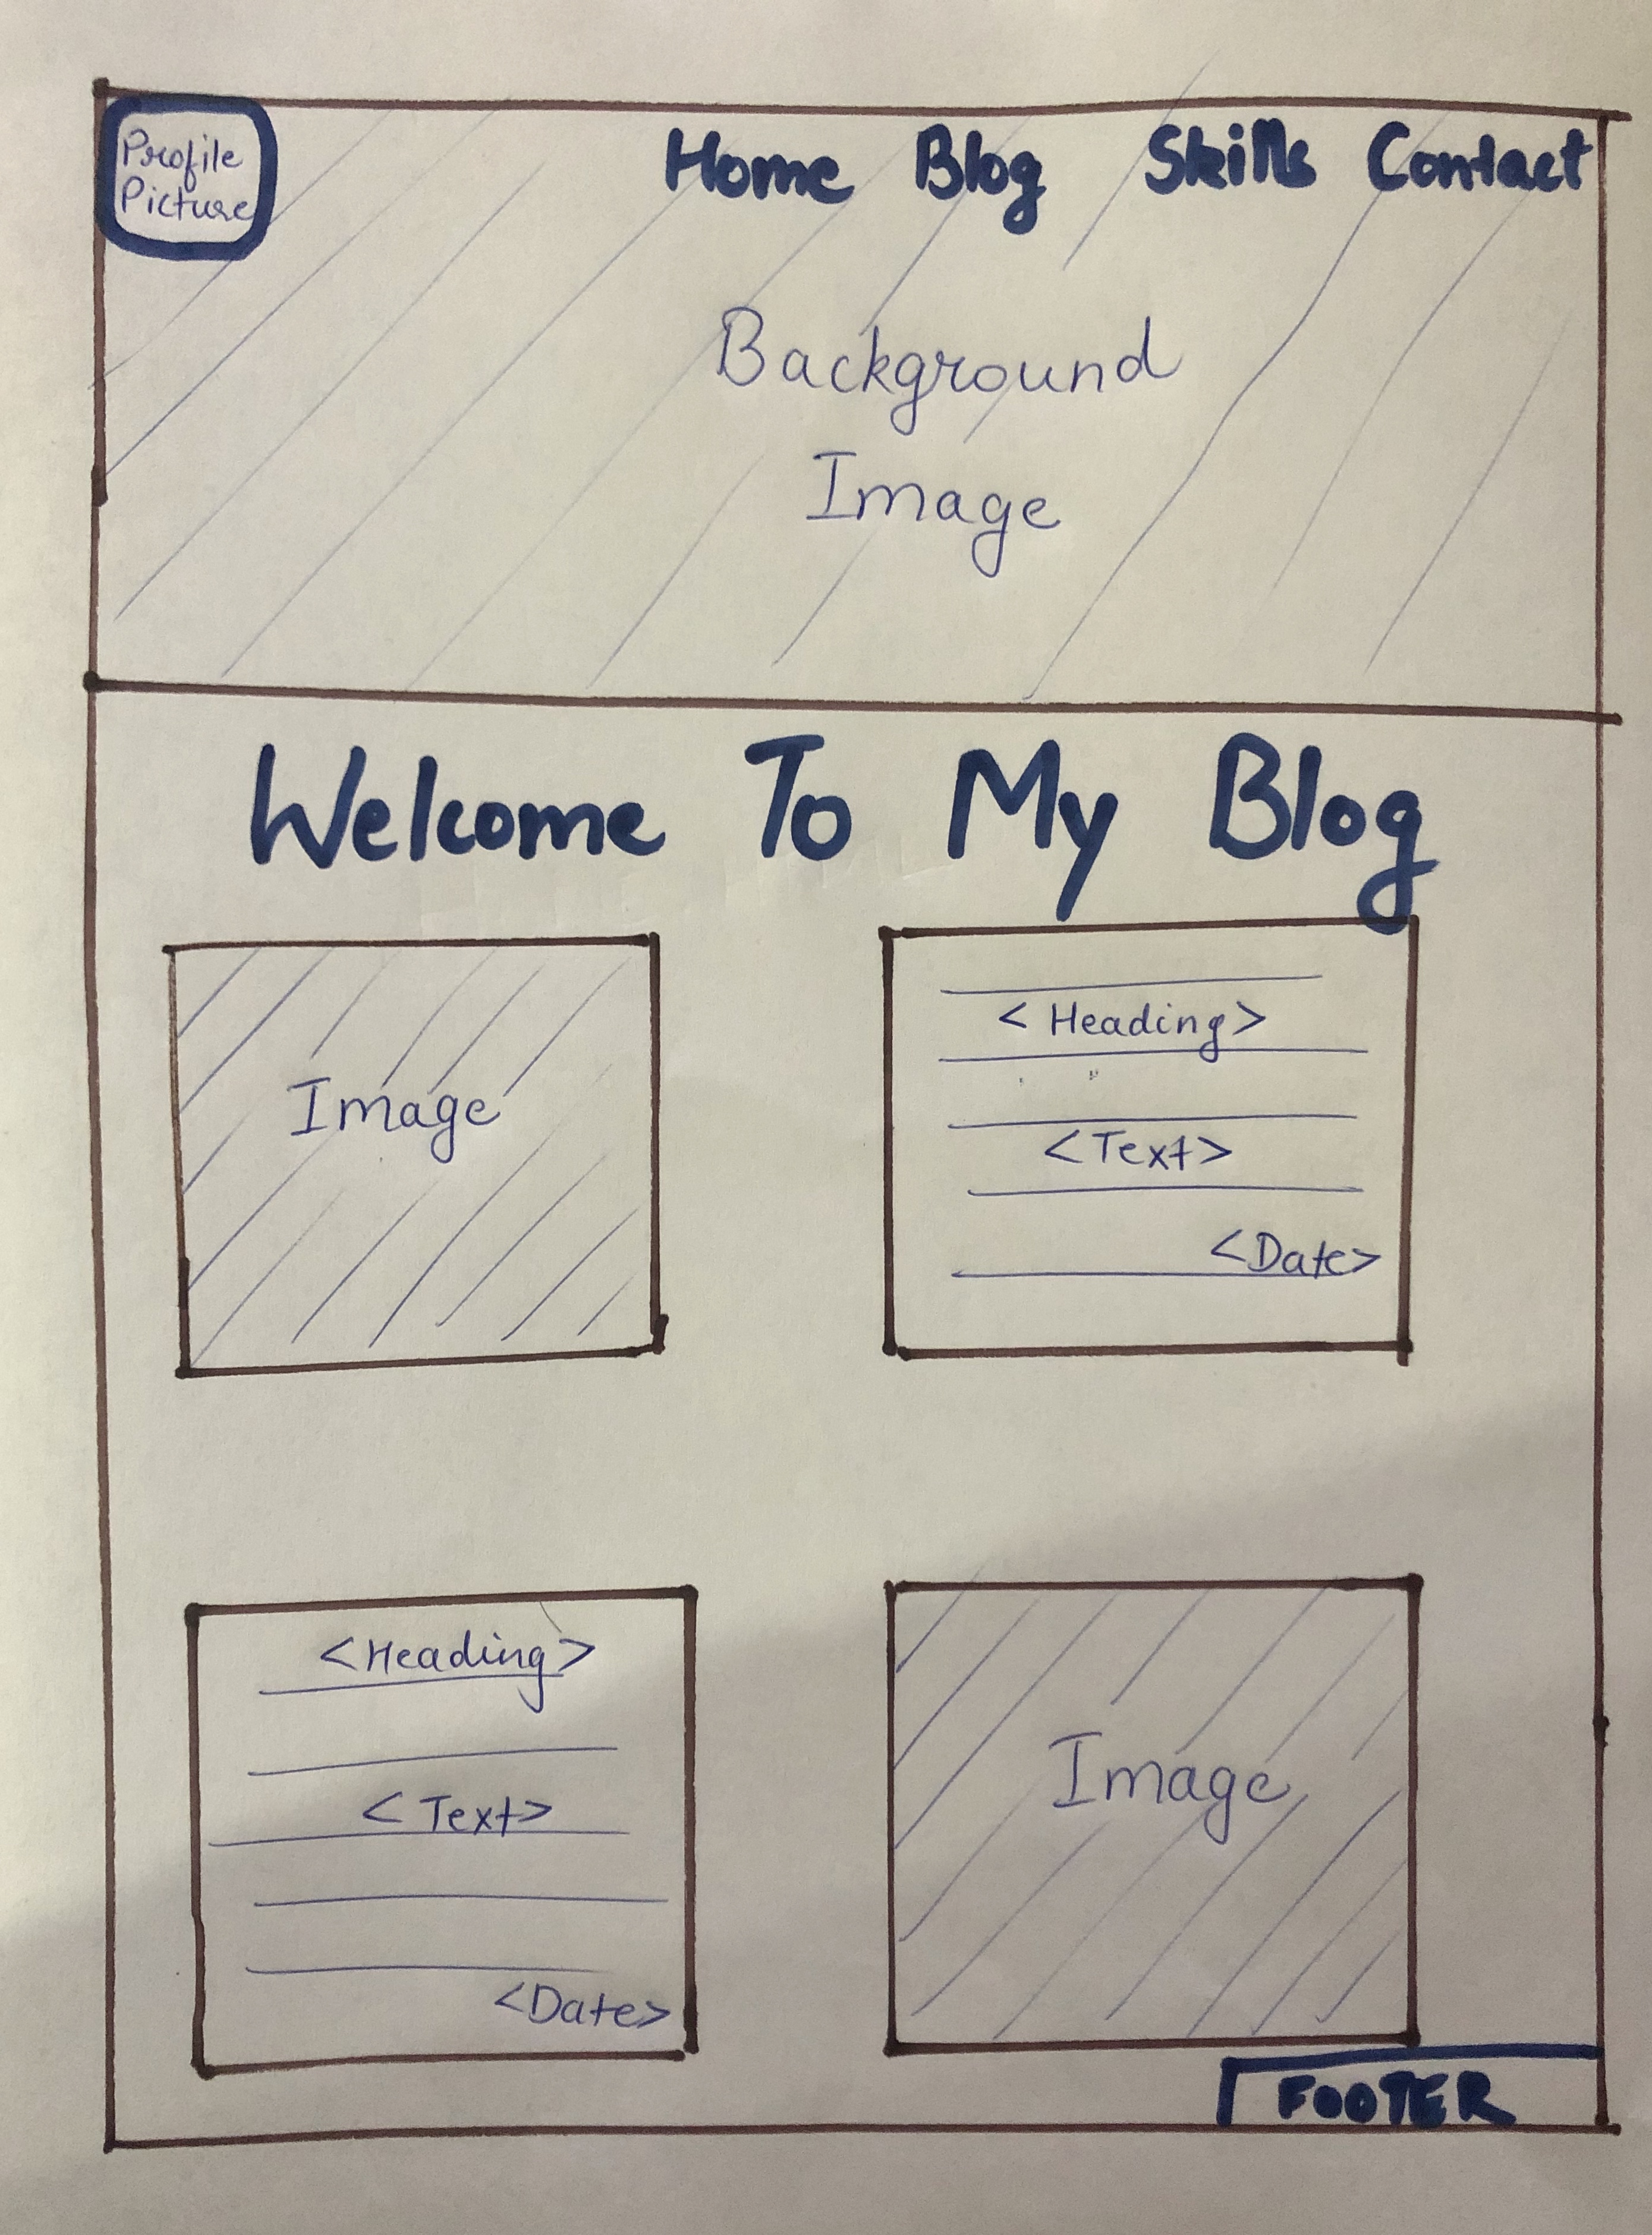 Profile
Picture
Home Blog Skills Contact
Background
Image
Welcome To My Blog
Image
<Heading>
<Text>
<Date>
<Heading>
<Text>
<Date>
Image
FOOTER